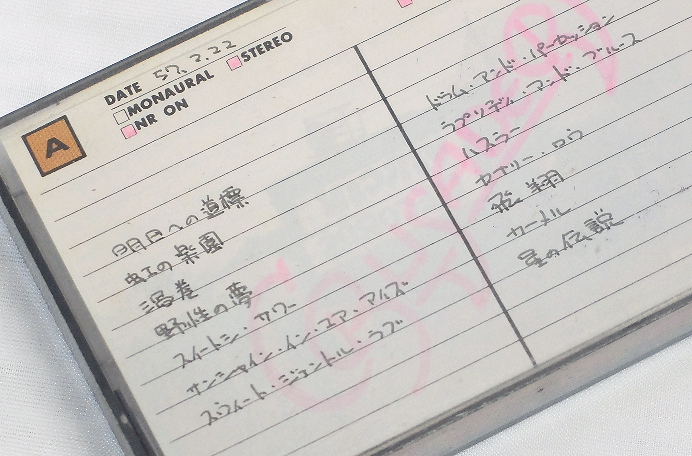 A
DATE 57.2.22
MONAURAL STEREO
NR ON
明日への道標
虹の楽園
渦巻
野性の夢
スイートン・サワー
サンシャイン・イン・ユア・アイズ
スウィート・ジェントル・ラブ
ドラム・アンド・パーカッション
ラプソディ・アンド・ブルース
ハスラー
ロウ
飛翔
カーメル
星の伝説